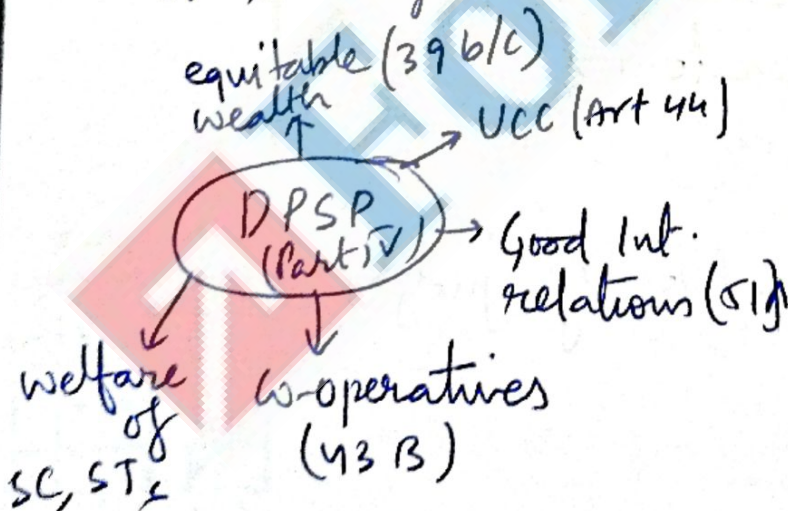 equitable (39 b/c)
wealth
UCC (Art 44)
DPSP
(Part IV)
Good Int.
relations (51)
welfare
of
SC, STs
co-operatives
(43 B)